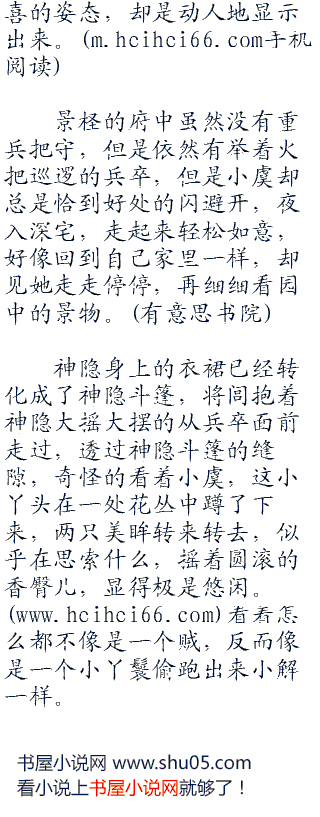 喜的姿态，却是动人地显示
出来。(m.hcihci66.com手机
阅读)
景柽的府中虽然没有重
兵把守，但是依然有举着火
把巡逻的兵卒，但是小虞却
总是恰到好处的闪避开，夜
入深宅，走起来轻松如意，
好像回到自己家里一样，却
见她走走停停，再细细看园
中的景物。(有意思书院)
神隐身上的衣裙已经转
化成了神隐斗篷，将闾抱着
神隐大摇大摆的从兵卒面前
走过，透过神隐斗篷的缝
隙，奇怪的看着小虞，这小
丫头在一处花丛中蹲了下
来，两只美眸转来转去，似
乎在思索什么，摇着圆滚的
香臀儿，显得极是悠闲。
(www.hcihci66.com)看着怎
么都不像是一个贼，反而像
是一个小丫鬟偷跑出来小解
一样。
书屋小说网 www.shu05.com
看小说上书屋小说网就够了！